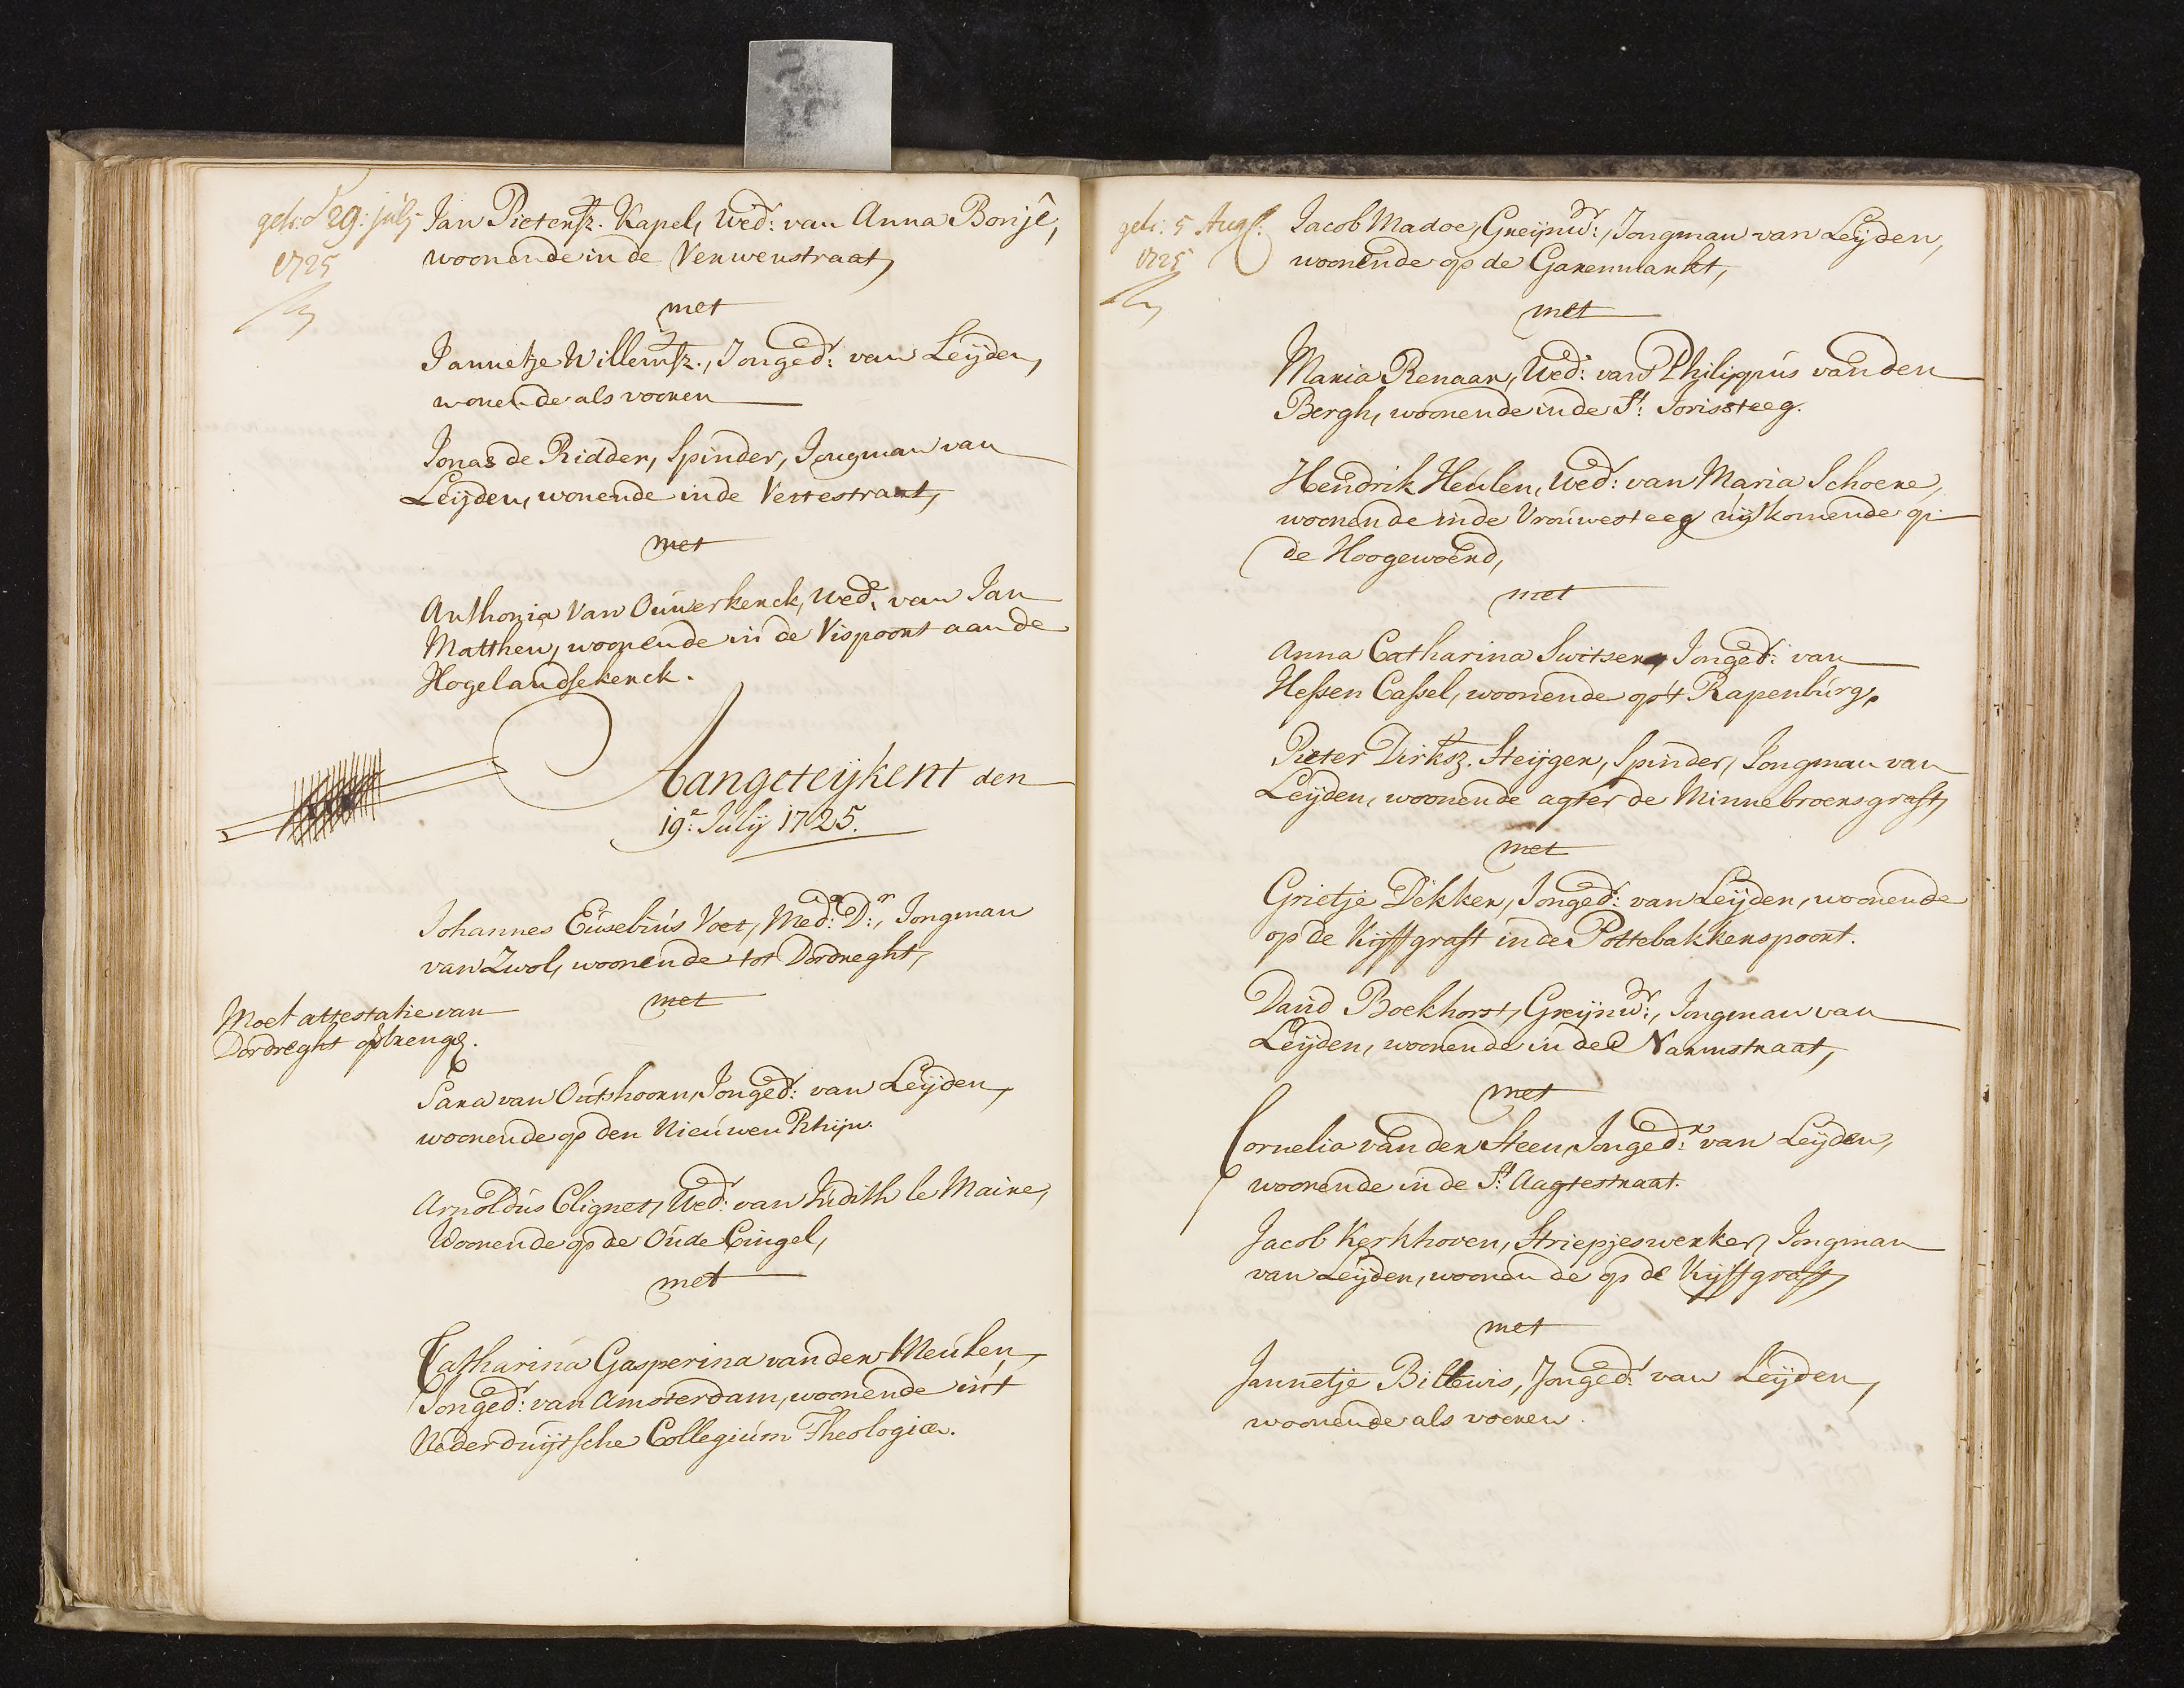 getr: d 29: julij
1725
Jan Pietersz. Kapel, Wedr: van Anna Bonjê,
woonende in de Verwerstraat,
met
Jannetje Willemsz., Jongedr: van Leijden,
wonende als vooren
Jonas de Ridder, Spinder, Jongman van
Leijden, wonende in de Vestestraat,
met
Anthonia Van Ouwerkerck, Wedr: van Jan
Mattheu, woonende in de Vispoort aan de
Hogelandsekerck.
Aangeteijkent den
19e: Julij 1725.
Johannes Eusebius Voet, Med: Dr:, Jongman
van Zwol, woonende tot Dordreght,
met
Moet attestatie van
Dordreght opbrenge.
Sara van Outshoorn, Jongedr: van Leijden,
woonende op den Nieuwen Rhijn.
Arnoldus Clignet, Wedr: van Judith le Maire,
Woonende op de Oude Cingel,
met
Catharina Gasperina van der Meulen,
Jongedr: van Amsterdam, woonende in't
Nederduijtsche Collegium Theologiæ.
getr: 5 Augs:
1725
Jacob Madoe, Greijnwr:, Jongman van Leijden,
woonende op de Garenmarkt,
met
Maria Renaar, Wed: van Philippus van den
Bergh, woonende in de St: Jorissteeg.
Hendrik Heulen, Wedr: van Maria Schoere,
woonende in de Vrouwesteeg uijtkomende op
de Hoogewoerd,
met
Anna Catharina Switser, Jongedr: van
Hessen Cassel, woonende op 't Rapenburg.
Pieter Dirksz. Steijger, Spinder, Jongman van
Leijden, woonende agter de Minnebroersgraft,
met
Grietje Dekker, Jongedr: van Leijden, woonende
op de Kijffgraft in de Pottebakkerspoort.
David Boekhorst, Greijnwr:, Jongman van
Leijden, woonende in de Narmstraat,
met
Cornelia van der Steen, Jongedr: van Leijden,
woonende in de St: Aagtestraat.
Jacob Kerkhoven, Striepjeswerker, Jongman
van Leijden, woonende op de Kijffgraft,
met
Jannetje Billewis, Jongedr: van Leijden,
woonende als vooren.